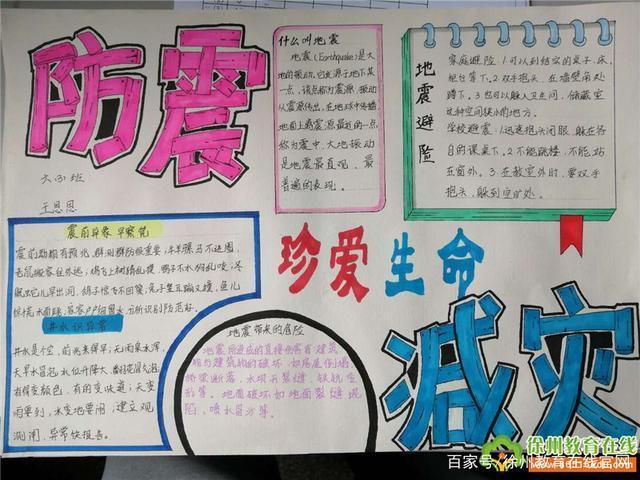 防震
六(3)班
王恩恩
什么叫地震
地震(Earthquake)是大
地的振动,它发源于地下某
一点,该点称为震源,振动
从震源传出,在地球中传播
地面上离震源最近的一点
称为震中,大地振动
是地震最直观、最
普遍的表现。
地震避险
家庭避险:1.可以到结实的桌子、床、
柜包等下。2.双手抱头,在墙壁角处
蹲下。3.也可以躲入卫生间、储藏室
这种空间狭小的地方。
学校避震:1.迅速抱头闭眼,躲在各
自的课桌下。2.不能跳楼,不能站
在窗外。3.在教室外时,要双手
抱头,躲到空旷处。
震前异象早察觉
震前动物有预兆,群测群防极重要;牛羊骡马不进圈,
老鼠搬家往外逃;鸡飞上树猪乱拱,鸭子不水狗乱咬;冬
眠蛇儿早出洞,鸽子惊飞不回巢;兔子竖耳蹦又撞,鱼儿
惊慌水面跳;家家户户留心,分析识别防范好。
井水识异常
井水是个宝,前兆来得早;无雨泉水浑,
天旱水冒泡;水位升降大,翻花冒气泡;
有得变颜色,有的变味道;天变
雨要到,水变地要闹;建立观
测网,异常快报告。
珍爱生命
地震带来的危险
地震所造成的直接伤害有建筑
物与建筑物的破坏,如房屋倒塌
桥梁断落,水坝开裂缝,铁轨变
形等。地面破坏如地面裂缝塌
陷,喷水冒沙等。
减灾
徐州教育在线
百家号/徐州教育在线官网